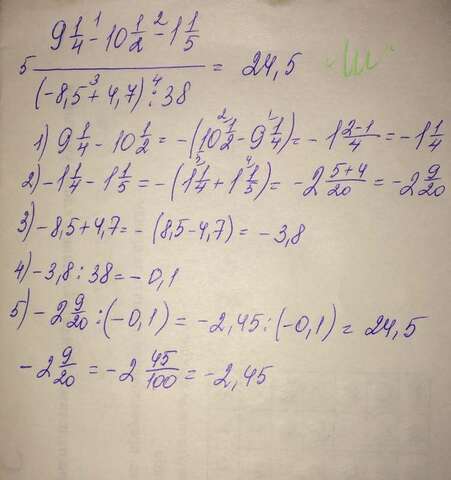 9 1/4 -¹ 10 1/2 -² 1 1/5
5 ──────────── = 24,5 "Ш"
(-8,5 +³ 4,7) :⁴ 38
1) 9 1/4 - 10 1/2 = -(10 1/2 - 9 1/4) = -1 (2-1)/4 = -1 1/4
2) -1 1/4 - 1 1/5 = -(1 1/4 + 1 1/5) = -2 (5+4)/20 = -2 9/20
3) -8,5+4,7 = -(8,5-4,7) = -3,8
4) -3,8 : 38 = -0,1
5) -2 9/20 : (-0,1) = -2,45 : (-0,1) = 24,5
-2 9/20 = -2 45/100 = -2,45